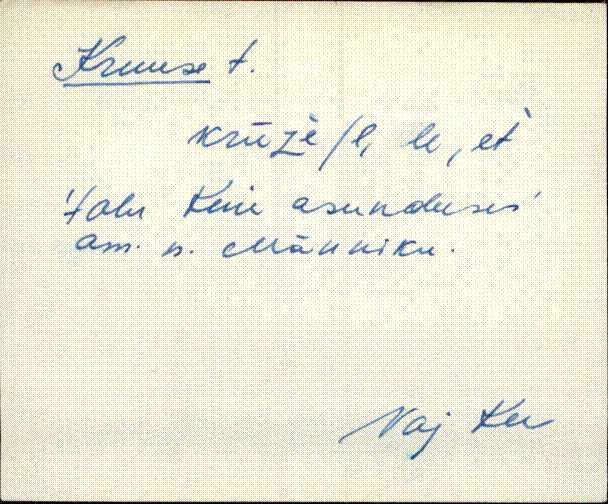 Kruuse t.
krūže̮ /l, le, et
'talu Keri asunduses'
am. n. Männiku.
Vaj Ku